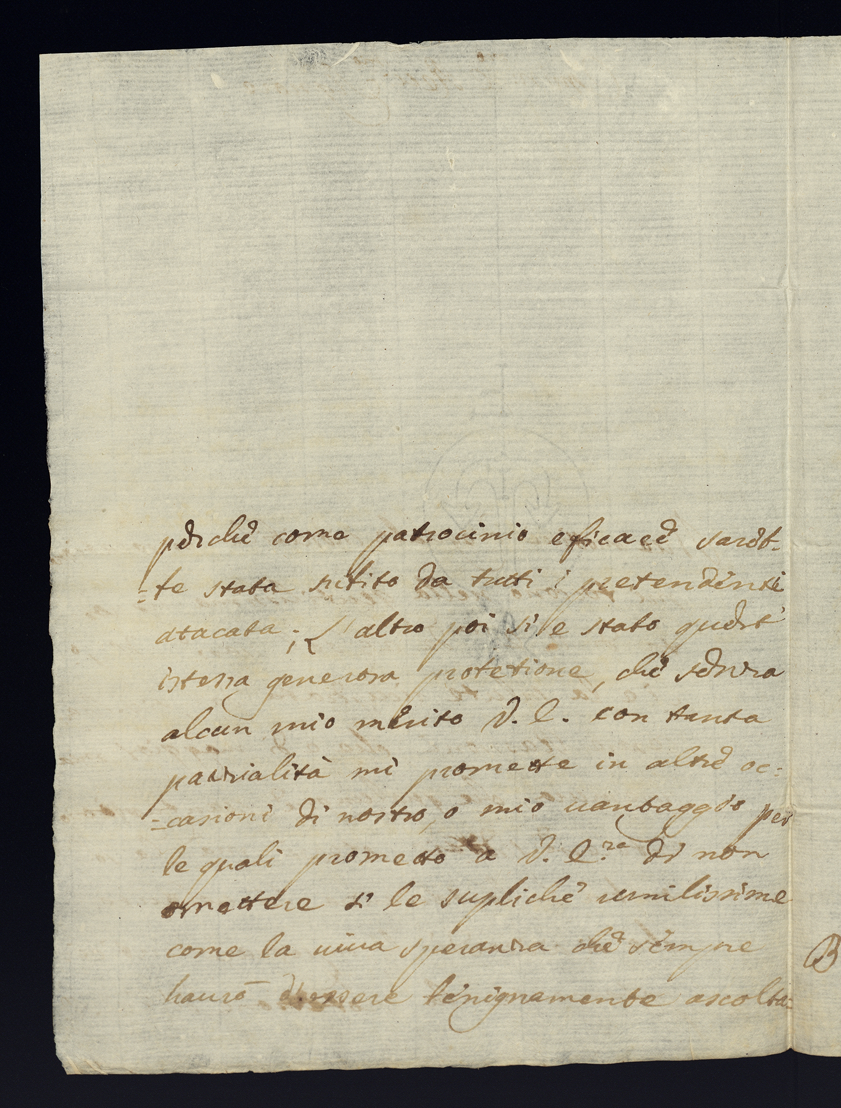 perche come patrocinio eficace sareb-
-te stata subito da tutti i pretendenti
atacata; L'altro poi si e stato quest'
istessa generosa protetione, che senza
alcun mio merito V. E. con tanta
parzialità mi promette in altre oc:
-casioni di nostro, o mio vantaggio per
le quali prometto a V. E.za di non
omettere si le supliche umilissime
come la viva speranza che sempre
havrò d'essere benignamente ascolta:
B